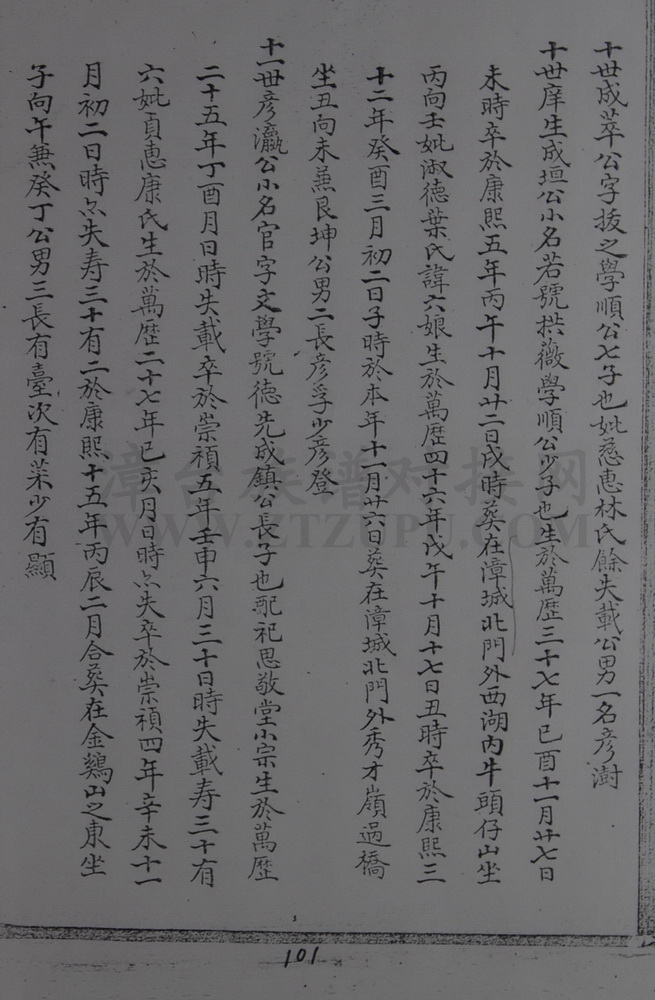 十世成萃公字拔之學順公七子也妣慈惠林氏餘失載公男一名彦澍
十世庠生成垣公小名若號拱薇學順公少子也生於萬歷三十七年已酉十一月廿七日
未時卒於康熙五年丙午十月廿二日戌時葬在漳城北門外西湖内牛頭仔山坐
丙向壬妣淑德葉氏諱六娘生於萬歷四十六年戊午十月十七日丑時卒於康熙三
十二年癸酉三月初二日子時於本年十一月廿六日葬在漳城北門外秀才嶺過橋
坐丑向未兼艮坤公男二長彦孚少彦登
十一世彦瀛公小名官字文學號德先成鎮公長子也配祀思敬堂小宗生於萬歷
二十五年丁酉月日時失載卒於崇禎五年壬申六月三十日時失載寿三十有
六妣貞惠康氏生於萬歷二十七年已亥月日時俱失卒於崇禎四年辛未十一
月初二日時俱失寿三十有二於康熙十五年丙辰二月合葬在金鷄山之東坐
子向午兼癸丁公男三長有臺次有萊少有顯
漳台族谱对接网
WWW.ZTZUPU.COM
101